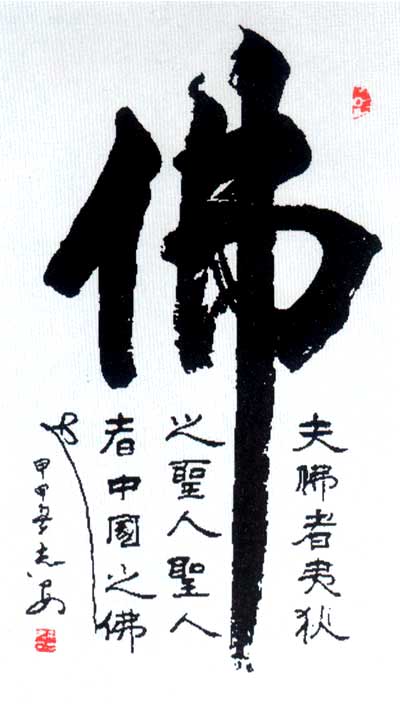 佛
夫佛者夷狄
之聖人聖人
者中國之佛
也
甲申冬志